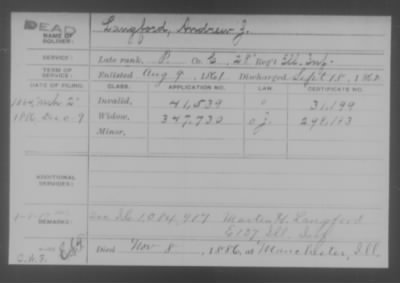 DEAD
NAME OF SOLDIER: Langford, Andrew J.
SERVICE: Late rank, P. Co. E, 28" Reg't Ill. Inf.
TERM OF SERVICE: Enlisted Aug 9, 1861 Discharged Sept 18, 1862
DATE OF FILING. CLASS. APPLICATION NO. LAW CERTIFICATE NO.
Invalid, 41,539 " 31,199
1886 Dec. 9 Widow, 347,730 J. 298,113
Minor,
ADDITIONAL SERVICES:
REMARKS: 1,084,487 Martin H. Langford
E 127 Ill. Inf
Died Nov 8, 1886, at Manchester, Ill.